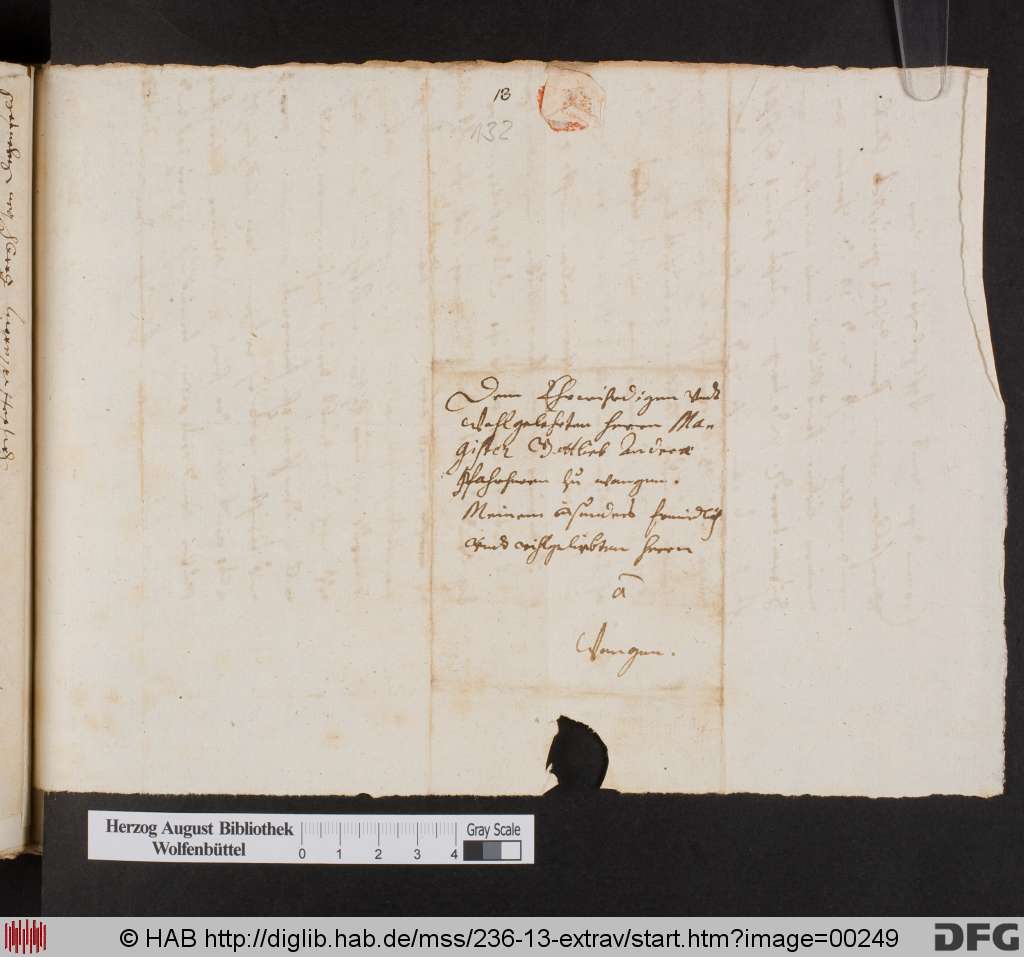 13
132
Dem Ehrwirdigen vnd
Wohlgelehrten herrn Ma-
gister Gottlieb Andreæ
Pfahrherren zu wangen.
Meinem freindlich
vnd vihlgeliebten herrn
a
Wangen.
Herzog August Bibliothek
Wolfenbüttel
Gray Scale
0 1 2 3 4
© HAB http://diglib.hab.de/mss/236-13-extrav/start.htm?image=00249
DFG